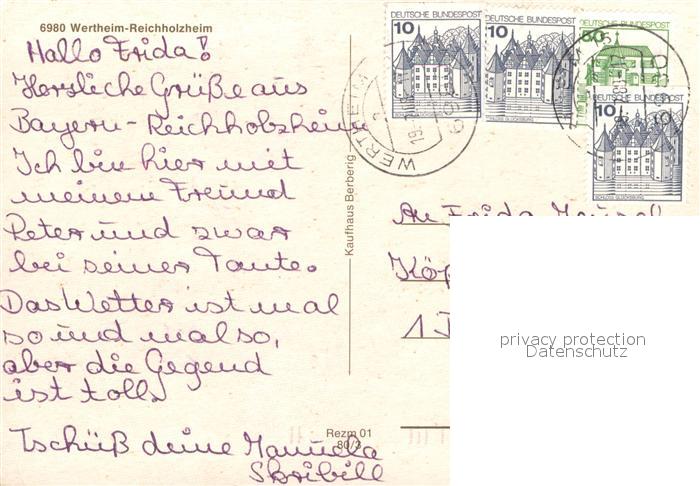 6980 Wertheim-Reichholzheim
Hallo Frida!
Herzliche Grüße aus
Bayern-Reichholzheim
Ich bin hier mit
meinem Freund
Peter und zwar
bei seiner Tante.
Das Wetter ist mal
so und mal so,
aber die Gegend
ist toll.
Tschüß deine Manuela
Skribill
Kaufhaus Berberig
Rezm 01
80/3
DEUTSCHE BUNDESPOST
10
SCHLOSS GLÜCKSBURG
DEUTSCHE BUNDESPOST
10
SCHLOSS GLÜCKSBURG
DEUTSCHE BUNDESPOST
50
DEUTSCHE BUNDESPOST
10
SCHLOSS GLÜCKSBURG
WERTHEIM
6980
An Frida
Köp
1
privacy protection
Datenschutz